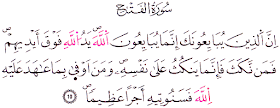 سُورَةُ الفَتْحِ
إِنَّ ٱلَّذِينَ يُبَايِعُونَكَ إِنَّمَا يُبَايِعُونَ ٱللَّهَ يَدُ ٱللَّهِ فَوْقَ أَيْدِيهِمْ
فَمَن نَّكَثَ فَإِنَّمَا يَنكُثُ عَلَىٰ نَفْسِهِۦ وَمَنْ أَوْفَىٰ بِمَا عَٰهَدَ عَلَيْهُ
ٱللَّهَ فَسَيُؤْتِيهِ أَجْرًا عَظِيمًا ١٠